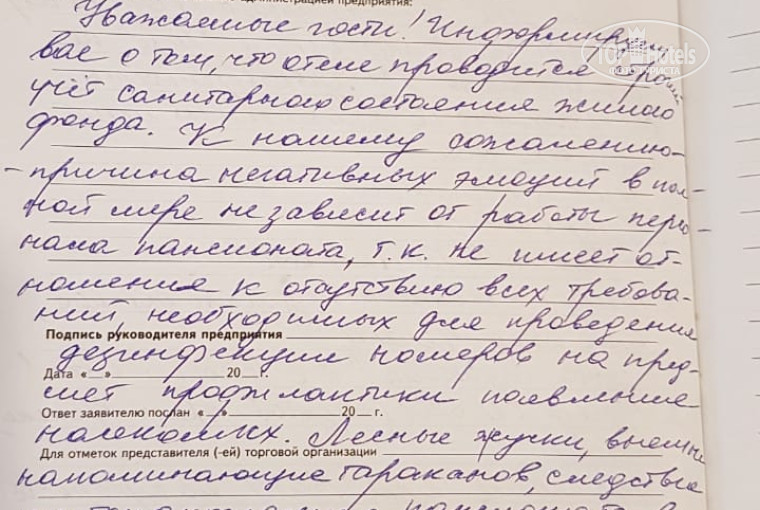 администрацией предприятия:
Уважаемые гости! Информируем
вас о том, что отеле проводится
учёт санитарного состояния жилого
фонда. К нашему сожалению-
- причина негативных эмоций в пол-
ной мере не зависит от работы персо-
нала пансионата, т.к. не имеет от-
ношения к отсутствию всех требова-
ний, необходимых для проведения
Подпись руководителя предприятия
дезинфекции номеров на пред-
Дата « » 20 г.
мет профилактики появление
Ответ заявителю послан « » 20 г.
насекомых. Лесные жучки, внешне
Для отметок представителя (-ей) торговой организации
напоминающие тараканов, следствие
TOP Hotels